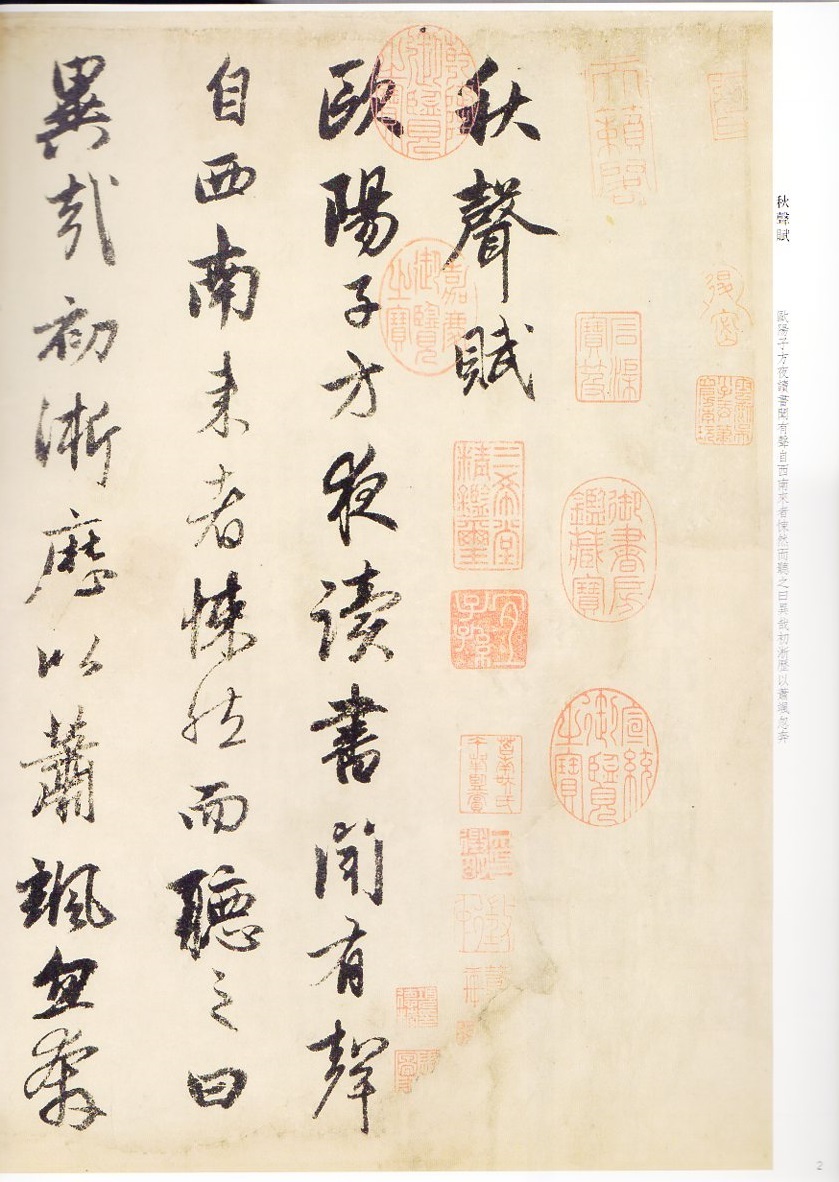 秋聲賦
歐陽子方夜讀書聞有聲自西南來者悚然而聽之曰異哉初淅歷以蕭颯忽奔
天籟閣
石渠寶笈
御書房鑑藏寶
宣統御覽之寶
秋聲賦
三希堂精鑑璽
宜子孫
乾隆御覽之寶
嘉慶御覽之寶
歐陽子方夜讀書聞有聲
自西南来者悚然而聽之曰
異哉初淅歷以蕭颯忽奔
2